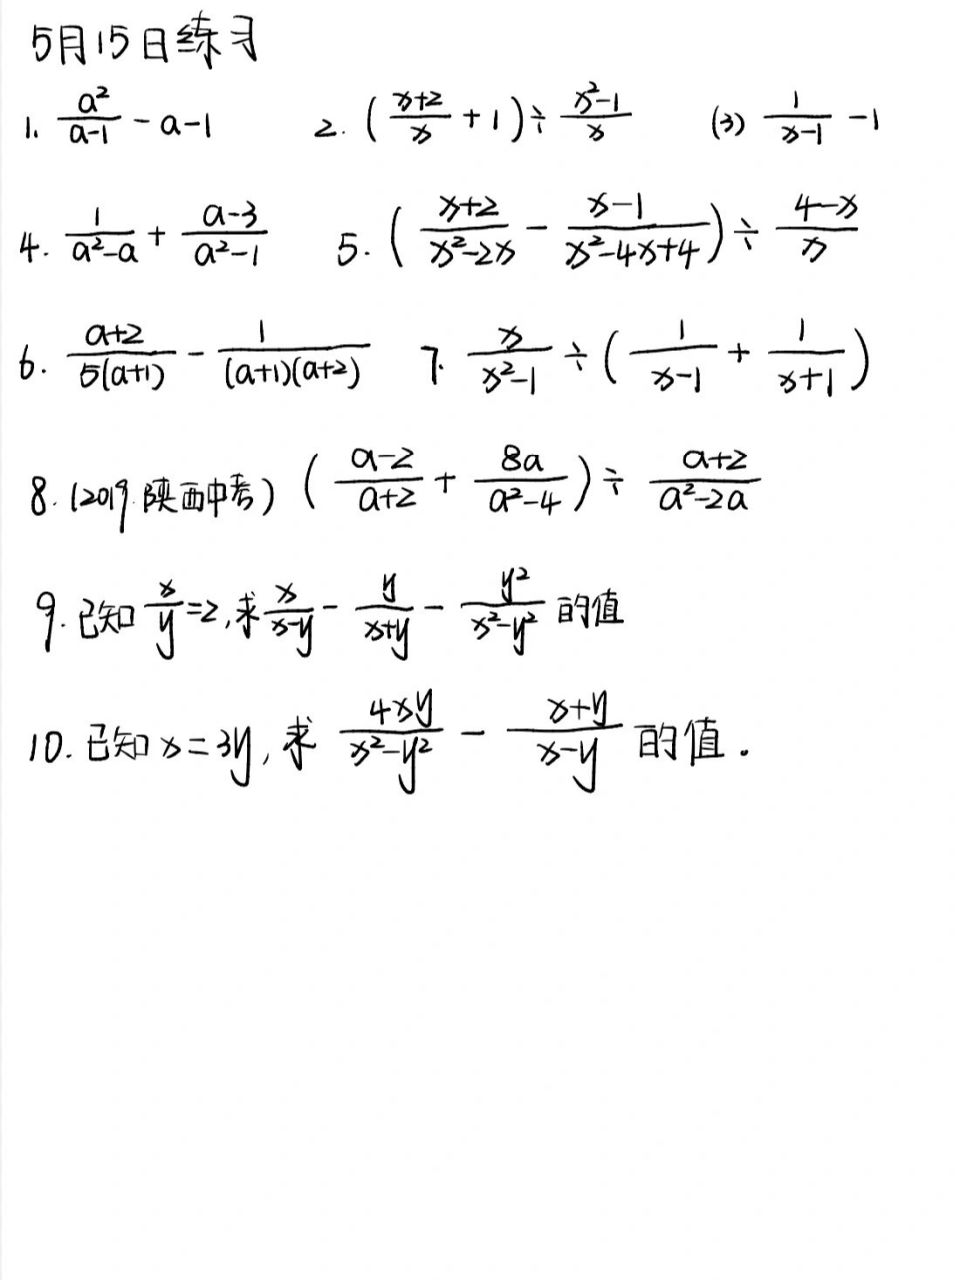 5月15日练习
1. \frac{a^2}{a-1} - a-1 2. (\frac{x+2}{x} + 1) ÷ \frac{x^2-1}{x} (3) \frac{1}{x-1} - 1
4. \frac{1}{a^2-a} + \frac{a-3}{a^2-1} 5. (\frac{x+2}{x^2-2x} - \frac{x-1}{x^2-4x+4}) ÷ \frac{4-x}{x}
6. \frac{a+2}{5(a+1)} - \frac{1}{(a+1)(a+2)} 7. \frac{x}{x^2-1} ÷ (\frac{1}{x-1} + \frac{1}{x+1})
8. (2019.陕西中考) (\frac{a-2}{a+2} + \frac{8a}{a^2-4}) ÷ \frac{a+2}{a^2-2a}
9. 已知 \frac{x}{y}=2, 求 \frac{x}{x-y} - \frac{y}{x+y} - \frac{y^2}{x^2-y^2} 的值
10. 已知 x=3y, 求 \frac{4xy}{x^2-y^2} - \frac{x+y}{x-y} 的值.